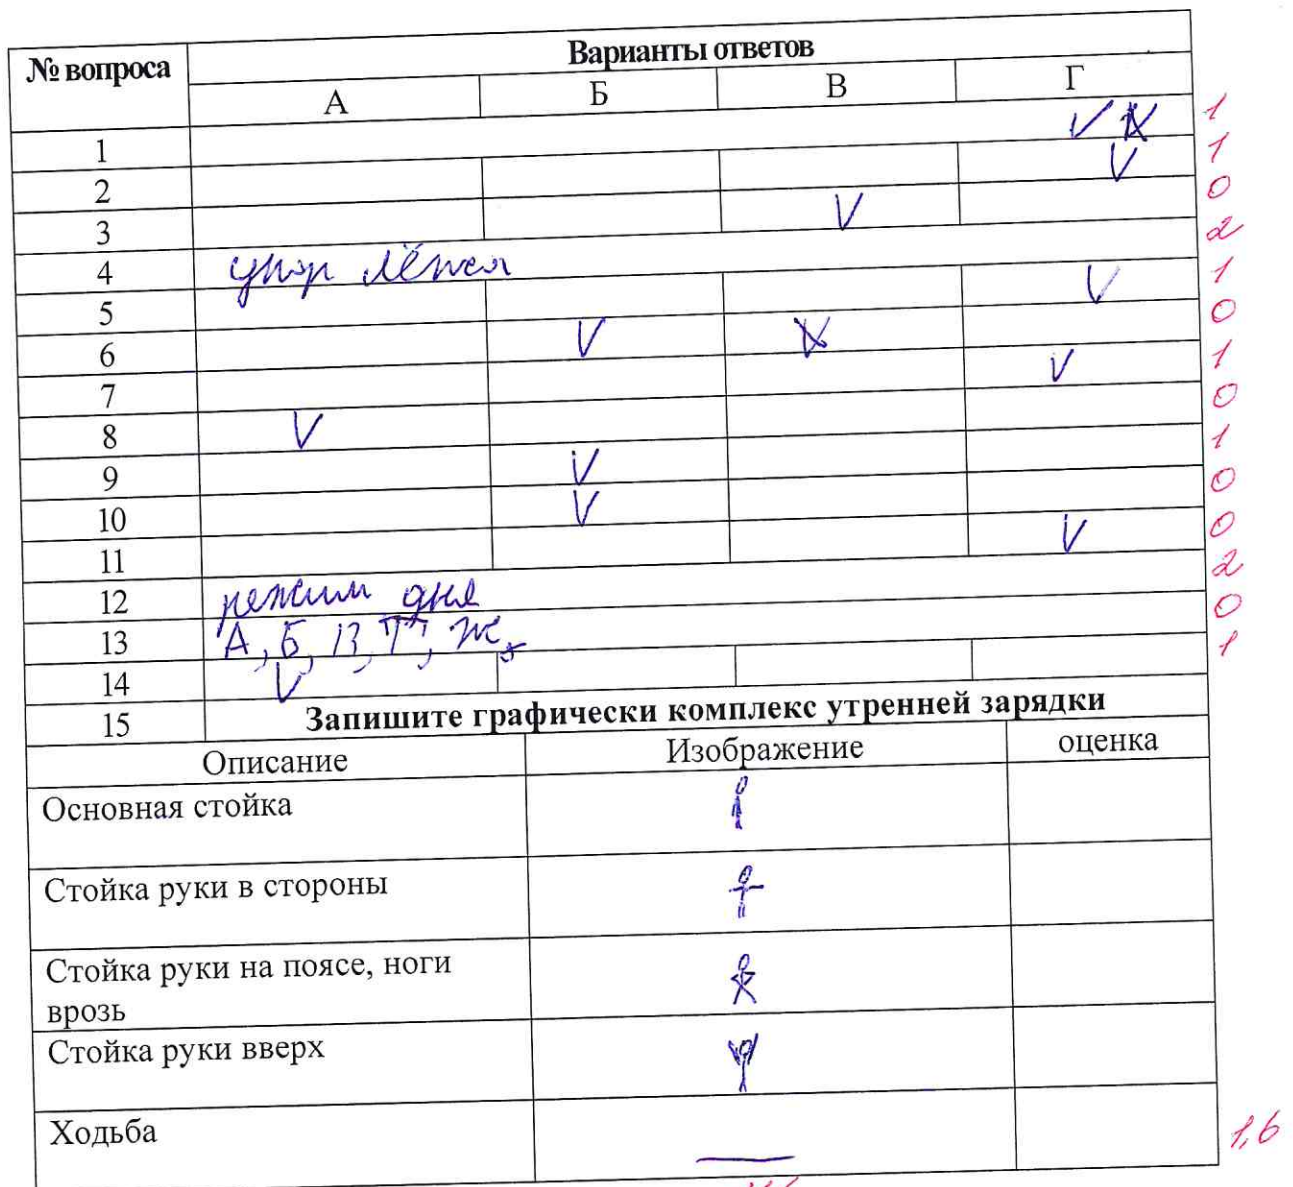 № вопроса Варианты ответов
А Б В Г
1 V 1
2 V 1
3 V 0
4 упор лёжа 2
5 V 1
6 V 0
7 V 1
8 V 0
9 V 1
10 V 0
11 V 0
12 режим дня 2
13 А, Б, В, Г, Ж, 0
14 V 1
15 Запишите графически комплекс утренней зарядки
Описание Изображение оценка
Основная стойка
Стойка руки в стороны
Стойка руки на поясе, ноги
врозь
Стойка руки вверх
Ходьба 1,6